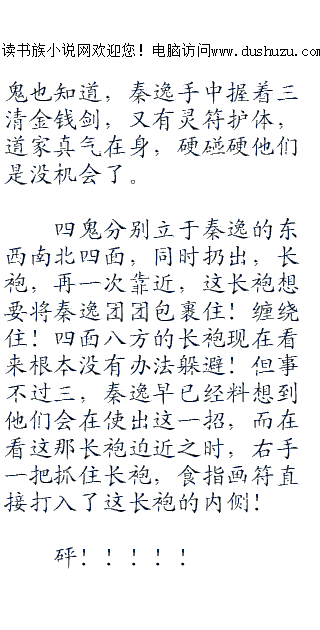 读书族小说网欢迎您！电脑访问www.dushuzu.com
鬼也知道，秦逸手中握着三
清金钱剑，又有灵符护体，
道家真气在身，硬碰硬他们
是没机会了。
四鬼分别立于秦逸的东
西南北四面，同时扔出，长
袍，再一次靠近，这长袍想
要将秦逸团团包裹住！缠绕
住！四面八方的长袍现在看
来根本没有办法躲避！但事
不过三，秦逸早已经料想到
他们会在使出这一招，而在
看这那长袍迫近之时，右手
一把抓住长袍，食指画符直
接打入了这长袍的内侧！
砰！！！！！